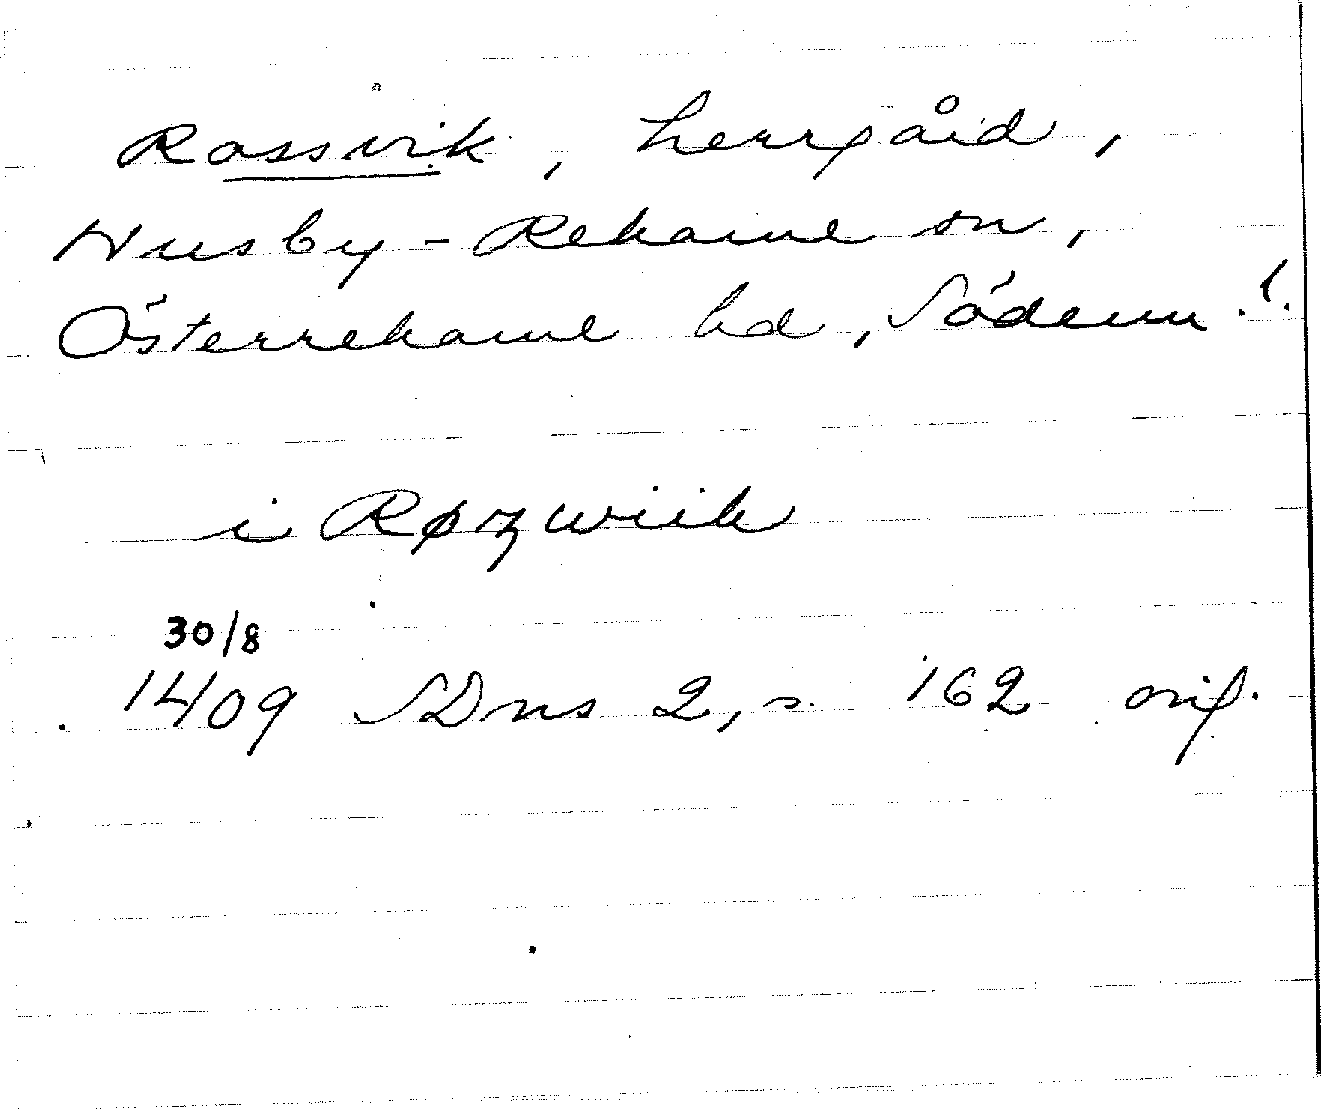 Rossvik, herrgård,
Husby-Rekarne sn,
Österrekarne hd, Söderm. l.
i Røzwiik
30/8
1409 SDns 2, s. 162 orig.